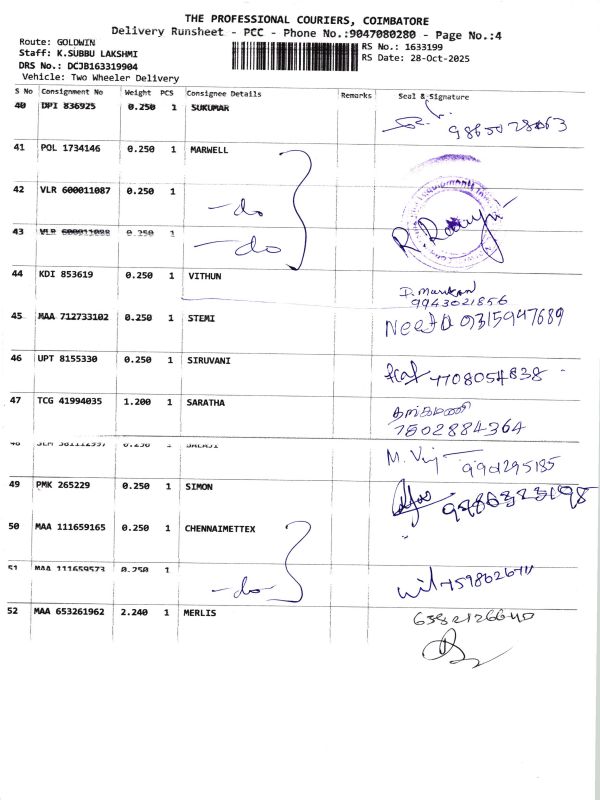 THE PROFESSIONAL COURIERS, COIMBATORE
Delivery Runsheet - PCC - Phone No.:9047080280 - Page No.:4
Route: GOLDWIN
Staff: K.SUBBU LAKSHMI
DRS No.: DCJB163319904
Vehicle: Two Wheeler Delivery
RS No.: 1633199
RS Date: 28-Oct-2025
S No Consignment No Weight PCS Consignee Details Remarks Seal & Signature
40 DPI 836925 0.250 1 SUKUMAR
41 POL 1734146 0.250 1 MARWELL
42 VLR 600011087 0.250 1 -do
43 VLR 600011088 0.250 1 -do
44 KDI 853619 0.250 1 VITHUN
9943021856
45 MAA 712733102 0.250 1 STEMI
46 UPT 8155330 0.250 1 SIRUVANI
7708054838
47 TCG 41994035 1.200 1 SARATHA
7502884364
48 0.250 1 BALAJI
990295185
49 PMK 265229 0.250 1 SIMON
50 MAA 111659165 0.250 1 CHENNAIMETTEX
51 MAA 111659573 0.250 1 -do-
52 MAA 653261962 2.240 1 MERLIS